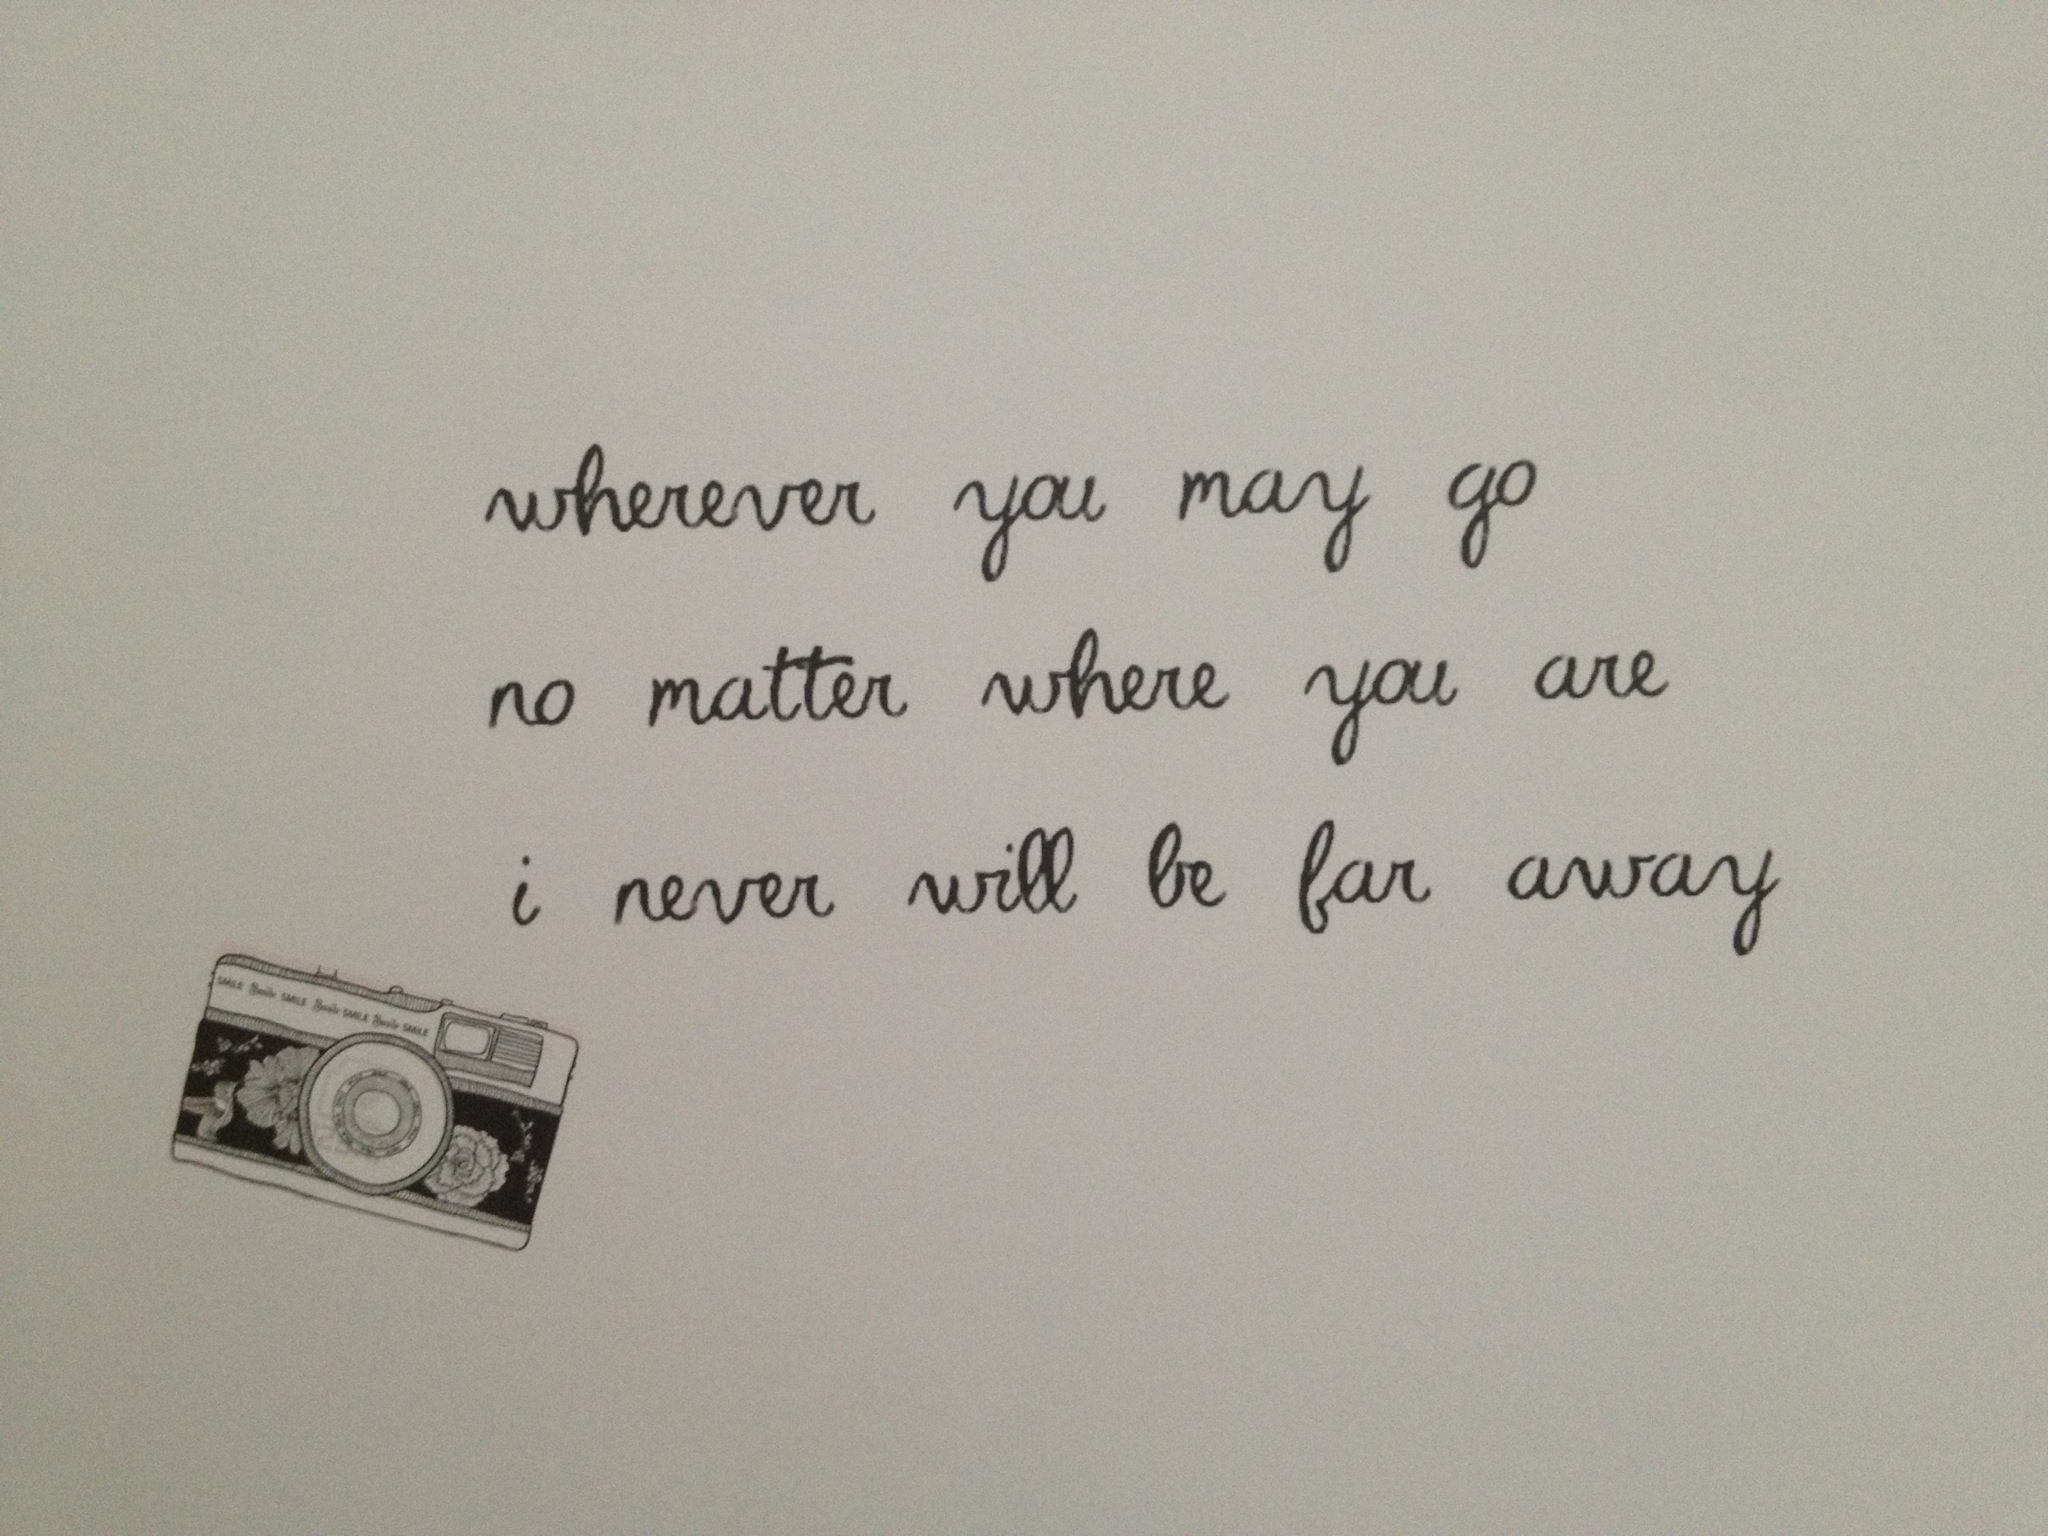 wherever you may go
no matter where you are
i never will be far away
SMILE Smile SMILE Smile SMILE Smile SMILE